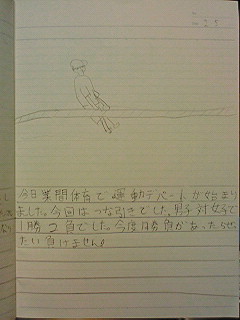 今日業間体育で運動デパートが始まり
ました。今回はつな引きでした。男子対女子で
1勝2負でした。今度は勝負があったらぜっ
たい負けません。